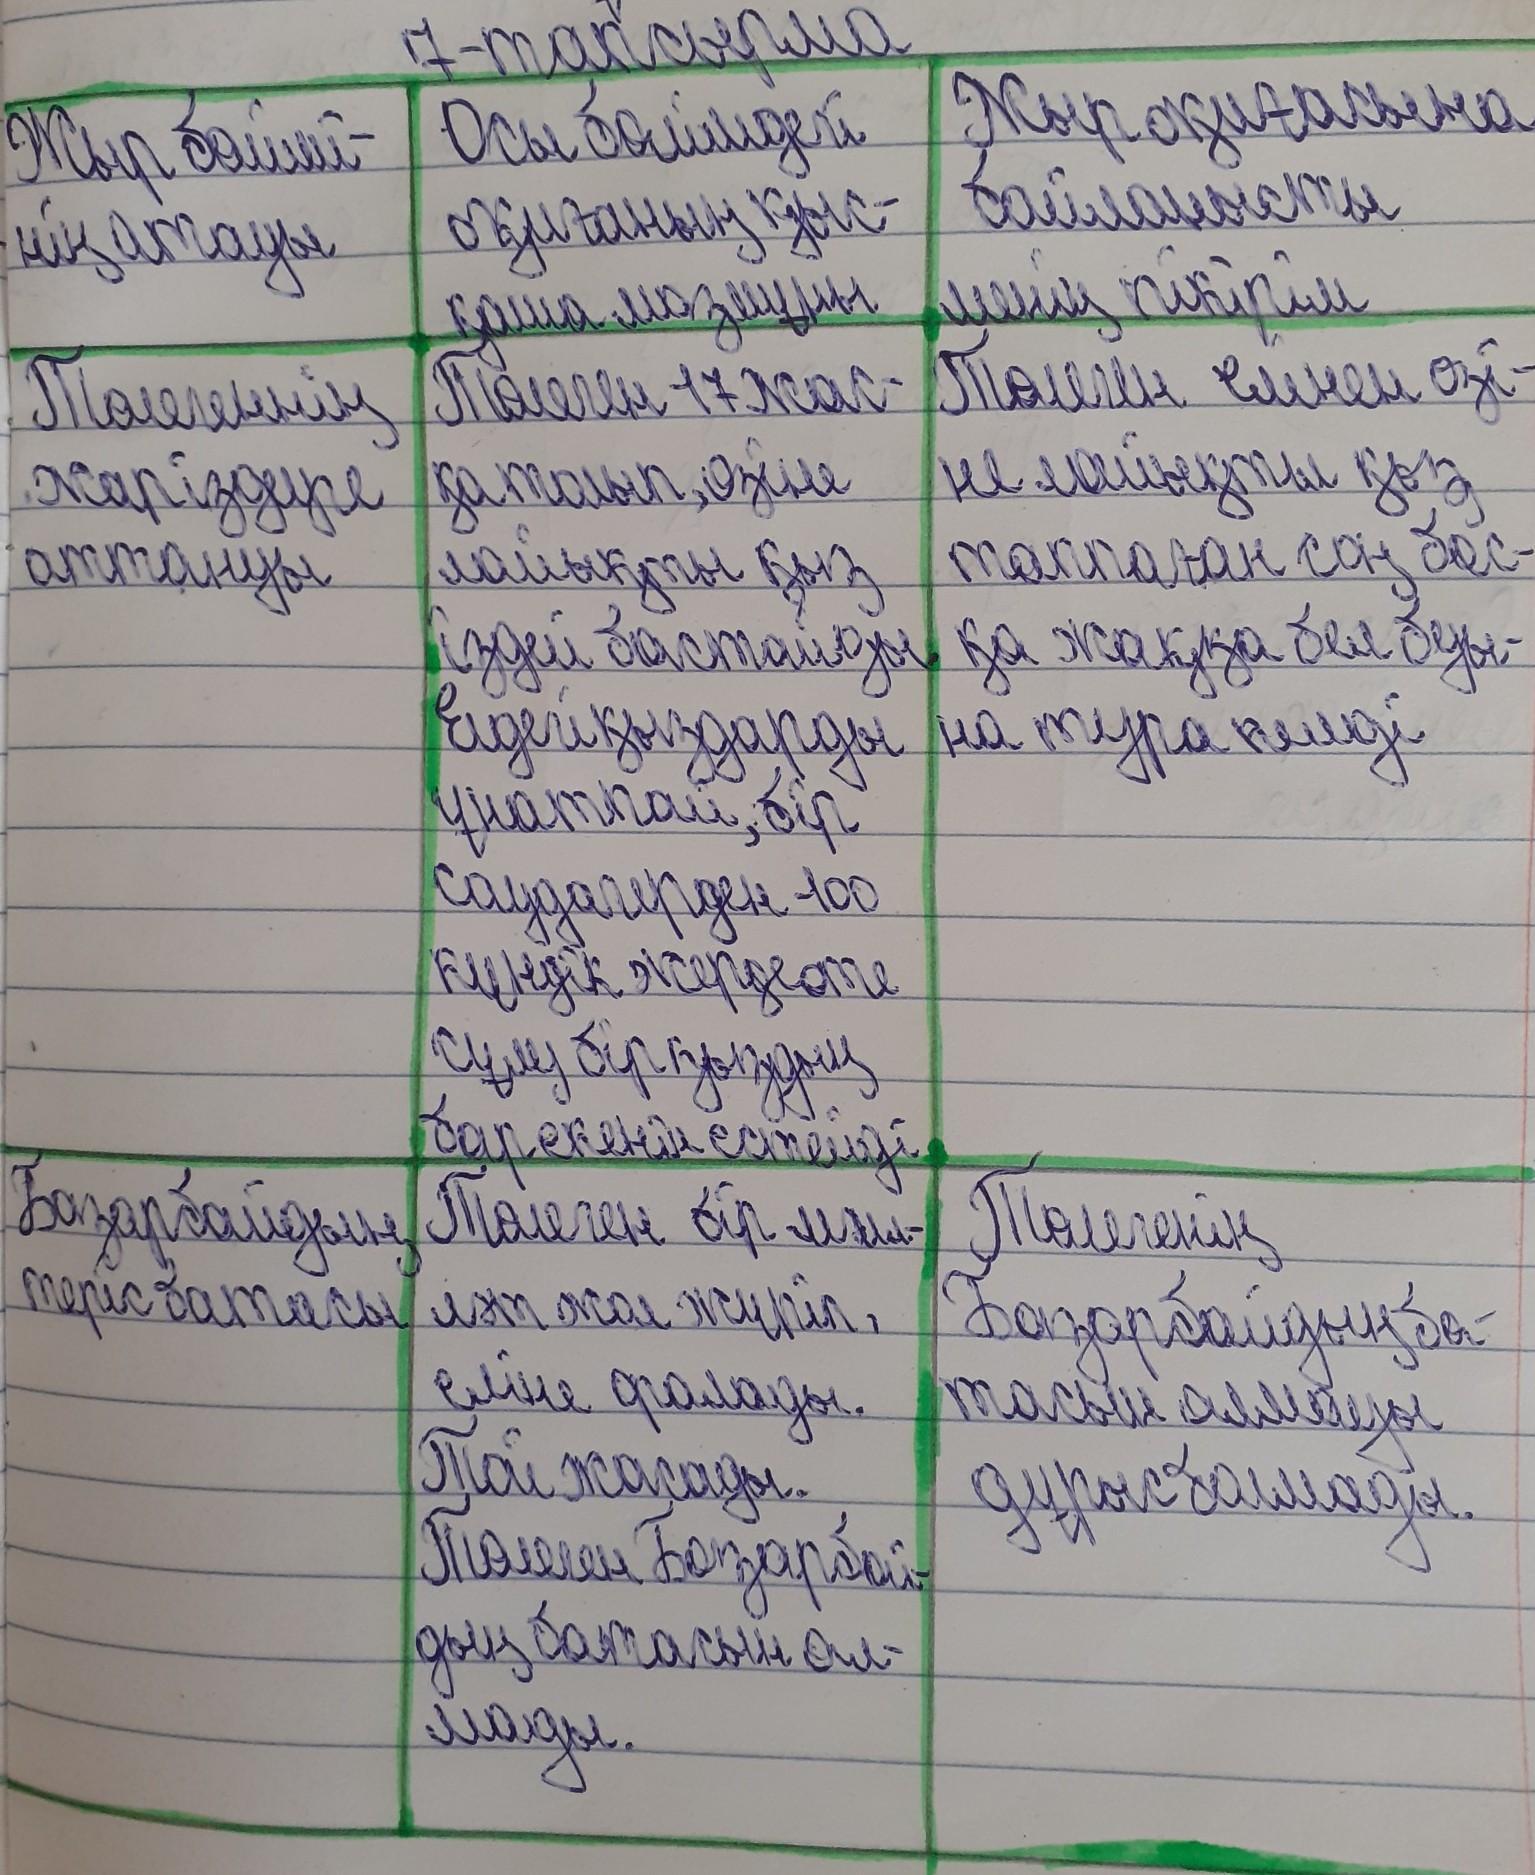 7-тапсырма
Жыр бөлімі-
нің атауы
Осы бөлімдегі
оқиғаның қыс-
қаша мазмұны
Жыр оқиғасына
байланысты
менің пікірім
Төлегеннің
жар іздеуге
аттануы
Төлеген 17 жас-
қа толып, өзіне
лайықты қыз
іздей бастайды.
Елдегі қыздарды
ұнатпай, бір
саудагерден 100
күндік жерде өте
сұлу бір қыздың
бар екенін естейді
Төлеген елінен өзі-
не лайықты қыз
таппаған соң бас-
қа жаққа бел буы-
на тура келеді
Базарбайдың
теріс батасы
Төлеген бір мәл-
лат жол жүріп,
еліне оралады.
Той жасады.
Төлеген Базарбай-
дың батасын ал-
мады.
Төлегенің
Базарбайдың ба-
тасын алмауы
дұрыс болмады.